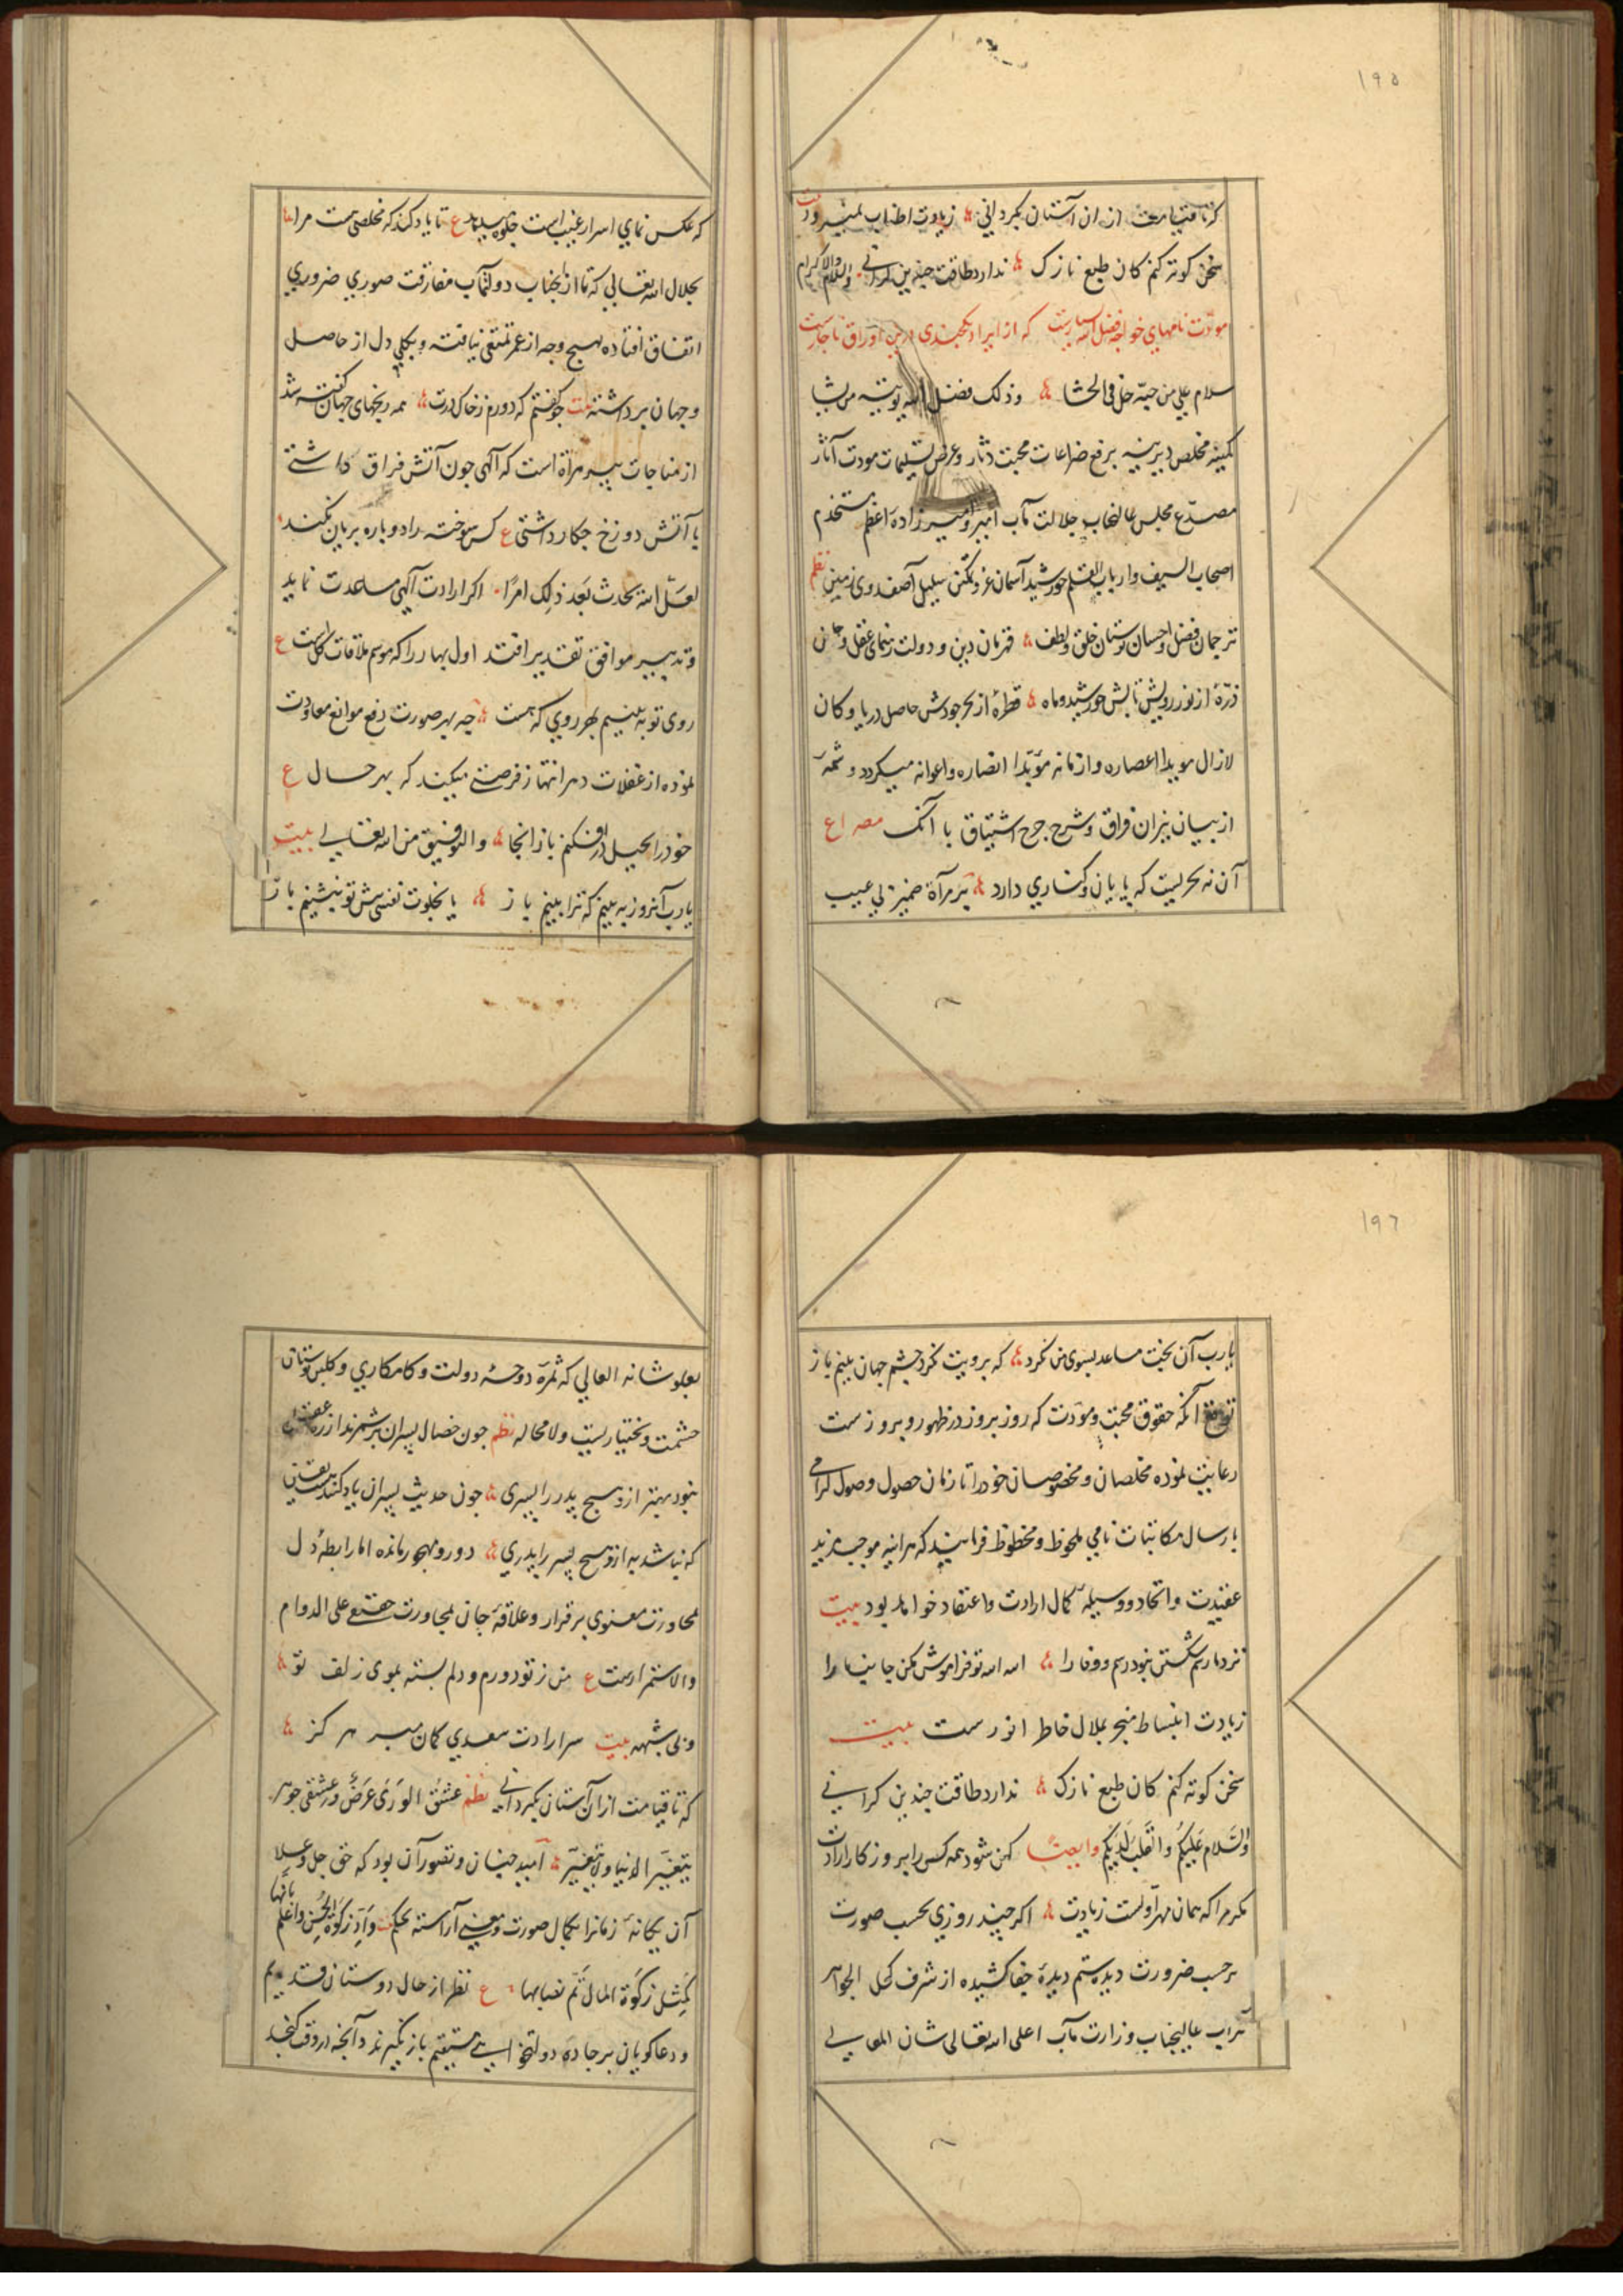 ١٩٥
که تا قیامت ازان آستان بکردانی زیادت اطناب نمیرود بیت
سخن کوته کنم کان طبع نازک ندارد طاقت چندین کرانی والسلام والاکرام
مودّت نامهای خواجه فضل الله که از ایراد در این اوراق ناچارست
سلام علی من حبّه حلّ فی الحشا وذلک فضل الله یوتیه من یشا
کمینه مخلص دیرینه برفع ضراعات محبت دثار وعرض تسلیمات مودت آثار
مصدّع مجلس عالیجناب جلالت مآب امیر وامیرزاده اعظم مستخدم
اصحاب السیف وارباب القلم خورشید آسمان عز وتمکن سلیل آصف روی زمین نظم
ترجمان فضل واحسان بوستان خلق ولطف قهرمان دین ودولت رهنمای عقل وجان
ذرّهٔ از نور رویش تابش خورشید وماه قطرهٔ از بحر جودش حاصل دریا وکان
لازال موبدا اعصاره وازمانه مؤیّدا انصاره واعوانه میکردد وشمّهٔ
از بیان نیران فراق وشرح جرح اشتیاق با آنک مصراع
آن نه بحریست که پایان وکناری دارد بر مرآة ضمیر بی عیب
که عکس نمای اسرار غیب است جلوه میـ ع تا یاد کند که مخلصی هست مرا
بجلال الله تعالی که تا از انجناب دولتمآب مفارقت صوری ضروری
اتفاق افتاده بهیچ وجه از عمر تمتعی نیافته وبکلی دل از حاصل
وجهان برداشته بیت چو کفتم که دورم ز خاک درت همه رنجهای جهان کفته شد
از مناجات پیر هراة است که آلهی چون آتش فراق داشتی
با آتش دوزخ چکار داشتی ع کس سوخته را دوباره بریان نکند
لعلّ الله یحدث بعد ذلک امرًا اکر ارادت آلهی مساعدت نماید
وتدبیر موافق تقدیر افتد اول بهار را که موسم ملاقات کل است ع
روی تو به بینیم بهر روی که هست چه بهر صورت دفع موانع معاودت
نموده از غفلات دهر انتهاز فرصتی میکند که بهر حال ع
خود را بحیل در افکنم باز انجا والتوفیق من الله تعالی بیت
یارب آنروز به بینم که ترا بینم باز با بخلوت نفسی پیش تو بنشینم باز
١٩٦
یارب آن بخت مساعد بسوی من کرد که برویت نکرد چشم جهان بینم باز
توقع آنکه حقوق محبت ومودت که روز بروز در ظهور وبروزست
رعایت نموده مخلصان ومخصوصان خود را تا زمان حصول وصول کرامی
بارسال مکاتبات نامی ملحوظ ومحظوظ فرمایند که هر آینه موجب مزید
عقیدت واتحاد ووسیلهٔ کمال ارادت واعتقاد خواهد بود بیت
نزد ما رسم شکستن نبود رسم وفا را الله الله تو فراموش مکن جانب ما را
زیادت انبساط منجر بملال خاطر انورست بیت
سخن کوته کنم کان طبع نازک ندارد طاقت چندین کرانی
والسّلام علیکم والقلب لدیکم وایضًا کهن شود همه کس را بروزکار ارادت
مکر مرا که همان مهر اولست زیادت اکر چند روزی بحسب صورت
بر حسب ضرورت دیده ستم دیدهٔ جفا کشیده از شرف کحل الجواهر
تراب عالیجناب وزارت مآب اعلی الله تعالی شان المعالی
بعلو شانه العالی که ثمرهٔ دوحهٔ دولت وکامکاری وکلبن بوستان
حشمت وبختیاریست ولا محاله نظم چون خصال پسران بر شمرند از ره عقل
نبود بهتر ازو هیچ پدر را پسری چون حدیث پسران یاد کنند بیقین
که نباشد به ازو هیچ پسر را پدری دور ومهجور مانده اما رابطهٔ دل
بمحاورت معنوی برقرار وعلاقهٔ جان بمجاورت حقیقی علی الدوام
والاستمرارست ع من ز تو دورم ودلم بسته بموی زلف تو
وبی شبهه بیت سر ارادت سعدی کمان مبر هرکز
که تا قیامت ازان آستان بکردانی نظم عشق الوری عرض وعشقی جوهر
یتغیّر الدنیا ولا یتغیّر امید چنان وتصور آن بود که حق جل وعلا
آن یکانهٔ زمانرا بکمال صورت ومعنی آراسته بحکم بیت وادّ زکوة الحسن واعلم بانّها
کمثل زکوة المال تمّ نصابها ع نظر از حال دوستان قدیم
ودعاکویان بر جادهٔ دولتخواهی مستقیم باز نکیرند وآنچه در وقت کنجد